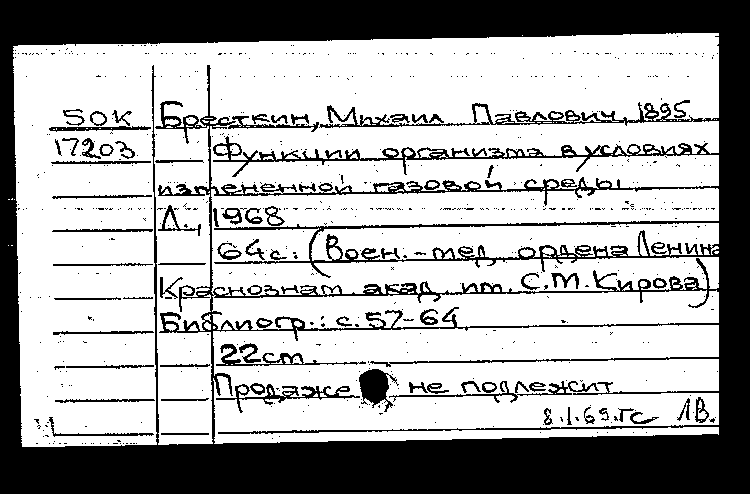 50К Бресткин, Михаил Павлович, 1895
17203 Функции организма в условиях
измененной газовой среды.
Л., 1968.
64с. (Воен.-мед. ордена Ленина
Краснознам. акад. им. С.М.Кирова).
Библиогр.: с. 57-64.
22см.
Продаже не подлежит.
8.I.69.гс 1В.